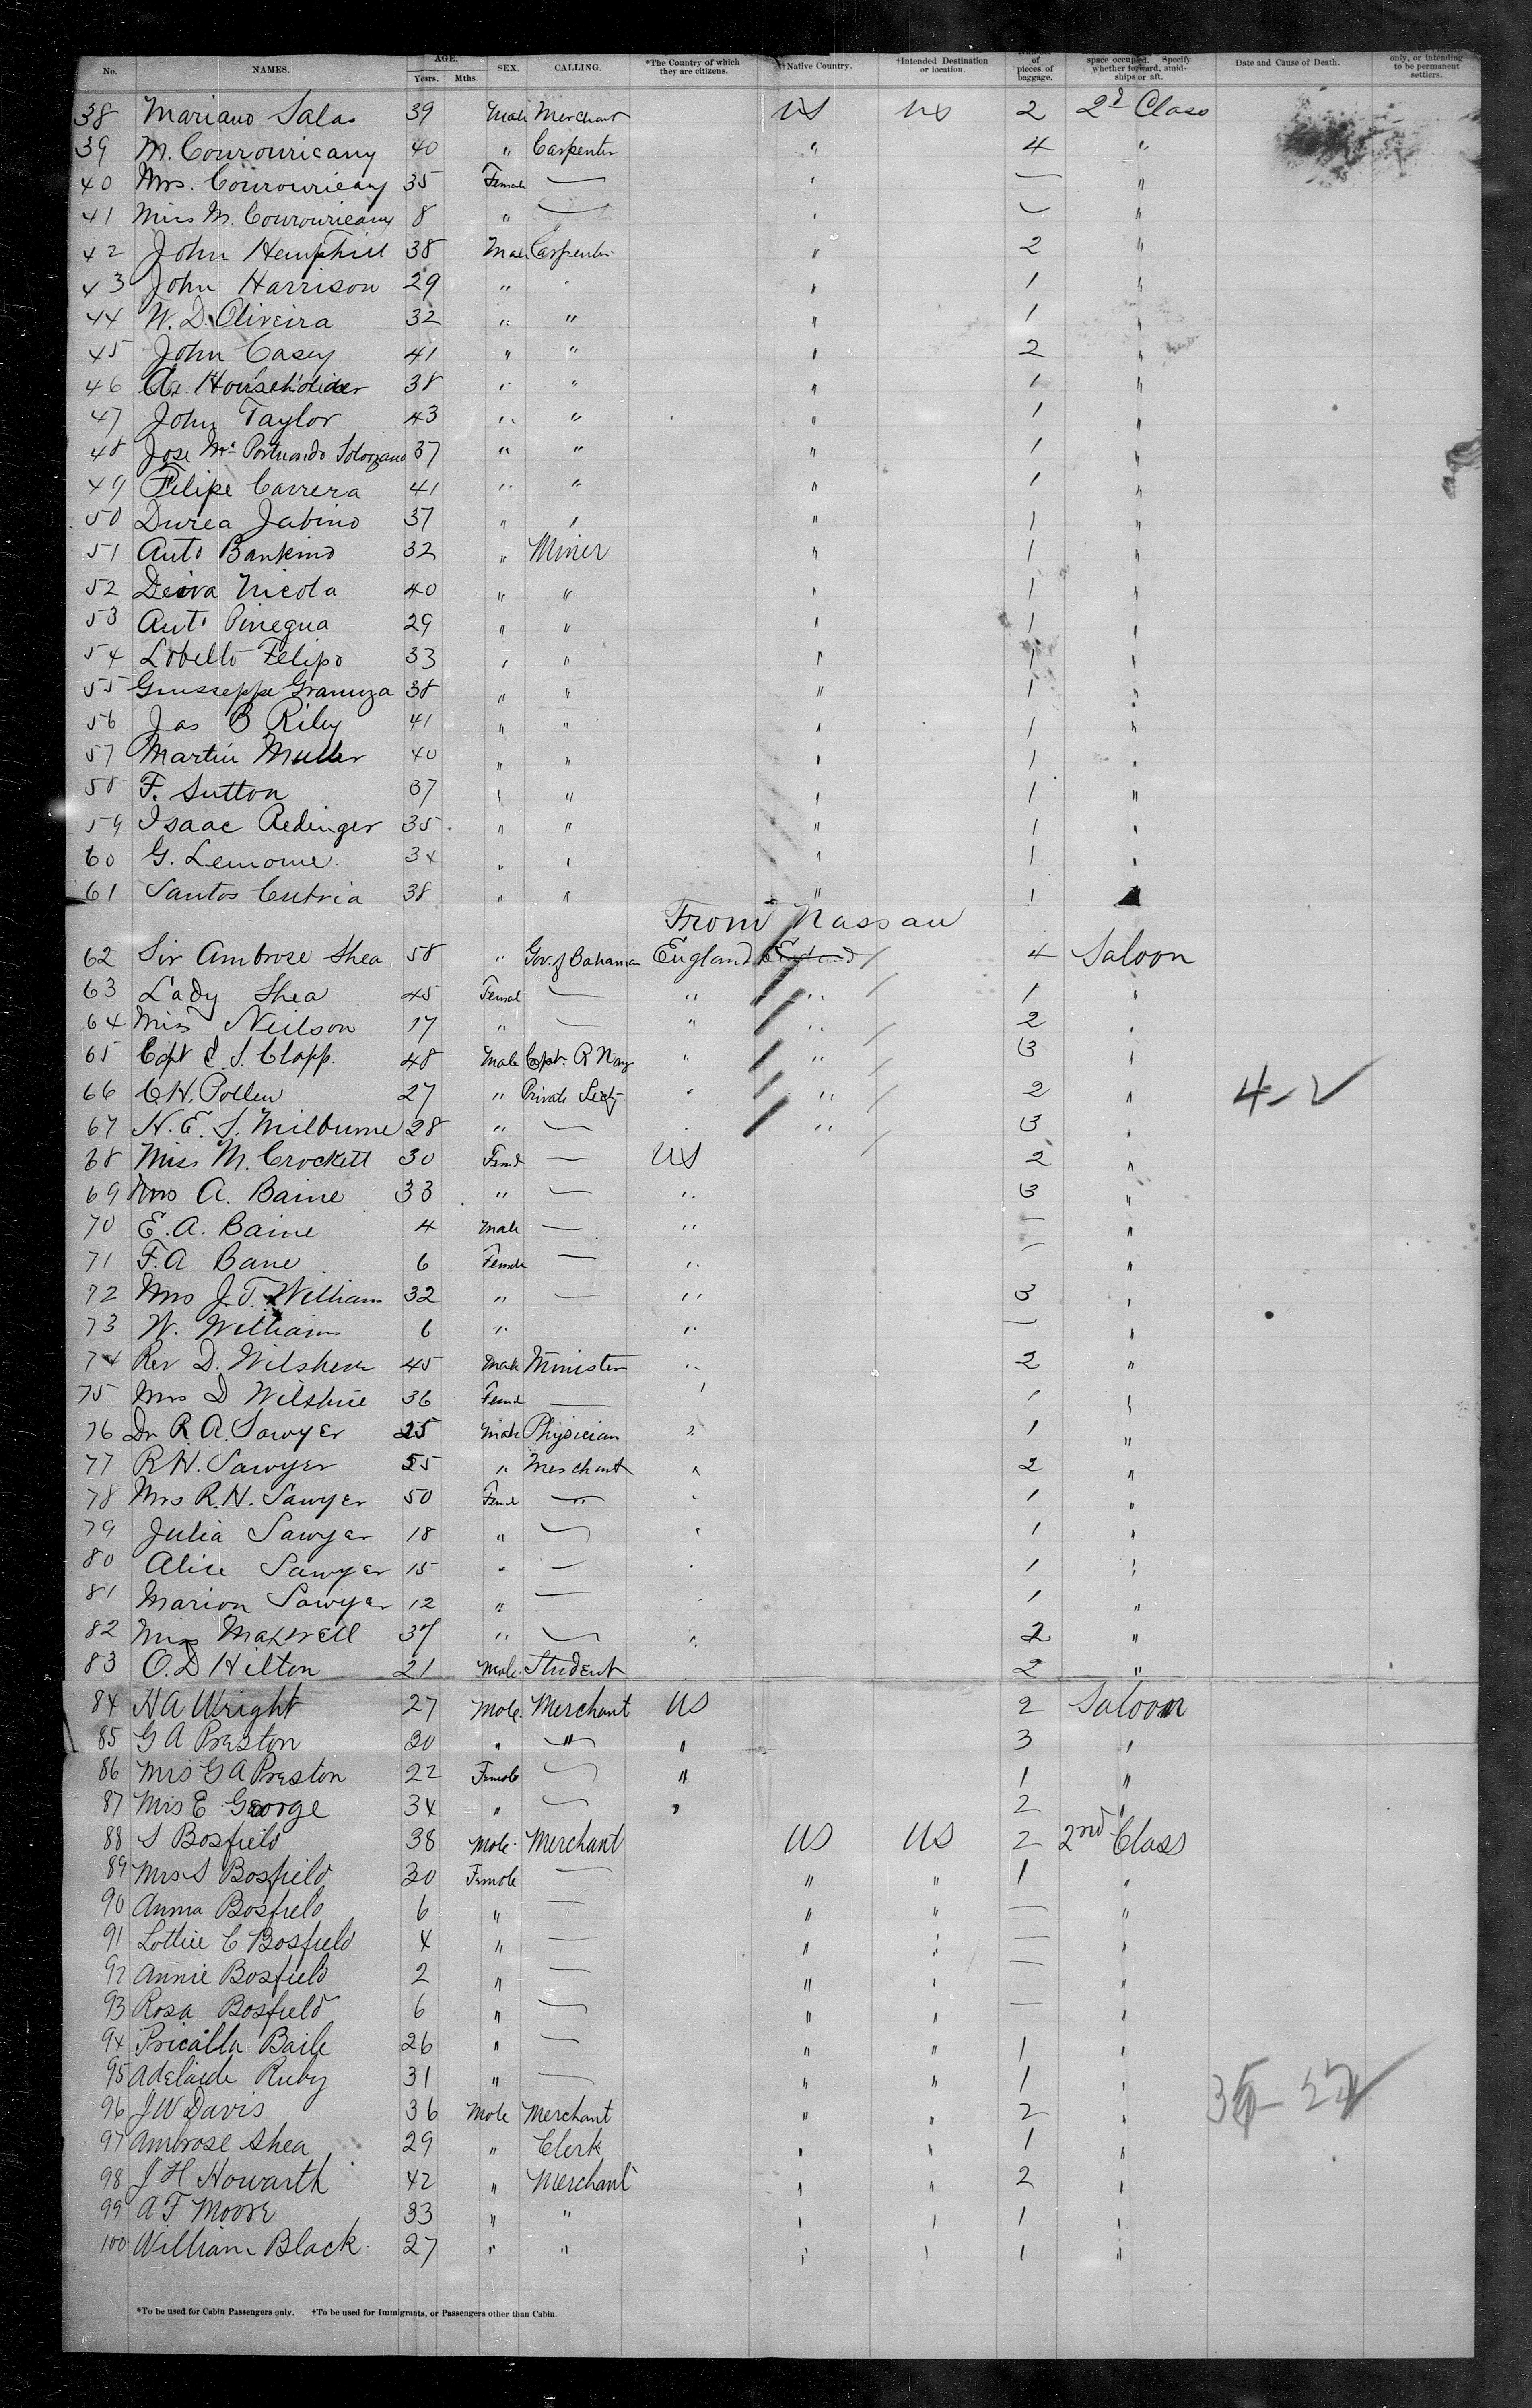 No. NAMES. AGE. Years. Mths SEX. CALLING. *The Country of which they are citizens. †Native Country. †Intended Destination or location. of pieces of baggage. space occupied. Specify whether forward, amidships or aft. Date and Cause of Death. only, or intending to be permanent settlers.
38 Mariano Salas 39 Male Merchant US US 2 2d Class
39 M. Courouricany 40 " Carpenter " 4 "
40 Mrs. Courouricany 35 Female — " — "
41 Miss M. Courouricany 8 " — " — "
42 John Hemphill 38 Male Carpenter " 2 "
43 John Harrison 29 " " " 1 "
44 W. D. Oliveira 32 " " " 1 "
45 John Casey 41 " " " 2 "
46 A. Householder 38 " " " 1 "
47 John Taylor 43 " " " 1 "
48 Jose Ma Portuondo Solorzano 37 " " " 1 "
49 Felipe Carrera 41 " " " 1 "
50 Durea Jabino 37 " " " 1 "
51 Anto Bankino 32 " Miner " 1 "
52 Deiva Nicola 40 " " " 1 "
53 Anto Pinegua 29 " " " 1 "
54 Lobello Felipo 33 " " " 1 "
55 Giusseppe Gramuza 38 " " " 1 "
56 Jas B Riley 41 " " " 1 "
57 Martin Muller 40 " " " 1 "
58 F. Sutton 37 " " " 1 "
59 Isaac Redinger 35 " " " 1 "
60 G. Lemoine 34 " " " 1 "
61 Santos Cutria 38 " " " 1 "
From Nassau
62 Sir Ambrose Shea 58 " Gov. of Bahamas England England 4 Saloon
63 Lady Shea 45 Femal — " " 1 "
64 Miss Neilson 17 " — " " 2 "
65 Capt E. S. Clapp. 48 Male Capt. R Navy " " 3 "
66 C.H. Pollen 27 " Private Secty " " 2 " 4-2
67 N. E. S. Milburne 28 " — " " 3 "
68 Miss M. Crockett 30 Feml — US 2 "
69 Mrs A. Baine 33 " — " 3 "
70 E. A. Baine 4 Male — " — "
71 F. A Bane 6 Female — " — "
72 Mrs J. T. William 32 " — " 3 "
73 W. Williams 6 " " — "
74 Rev D. Wilshere 45 Male Minister " 2 "
75 Mrs D Wilshire 36 Feml — " 1 "
76 Dr R. A. Sawyer 25 Male Physician " 1 "
77 R H. Sawyer 55 " Merchant " 2 "
78 Mrs R. H. Sawyer 50 Feml — " 1 "
79 Julia Sawyer 18 " — " 1 "
80 Alice Sawyer 15 " — " 1 "
81 Marion Sawyer 12 " — " 1 "
82 Miss Maxwell 37 " — " 2 "
83 O. D Hilton 21 Male. Student 2 "
84 H A Wright 27 Male. Merchant US 2 Saloon
85 G A Preston 30 " " " 3 "
86 Mrs G A Preston 22 Female — " 1 "
87 Mrs E George 34 " — " 2 "
88 S Bosfield 38 Male. Merchant US US 2 2nd Class
89 Mrs S Bosfield 30 Female — " " 1 "
90 Anna Bosfield 6 " — " " — "
91 Lottie C Bosfield 4 " — " " — "
92 Annie Bosfield 2 " — " " — "
93 Rosa Bosfield 6 " — " " — "
94 Pricalla Baile 26 " — " " 1 "
95 Adelaide Ruby 31 " — " " 1 "
96 J W Davis 36 Male Merchant " " 2 "
97 Ambrose Shea 29 " Clerk " " 1 "
98 J H Howarth 42 " Merchant " " 2 "
99 A F Moore 33 " " " " 1 "
100 William Black 27 " " " " 1 "
*To be used for Cabin Passengers only. †To be used for Immigrants, or Passengers other than Cabin.